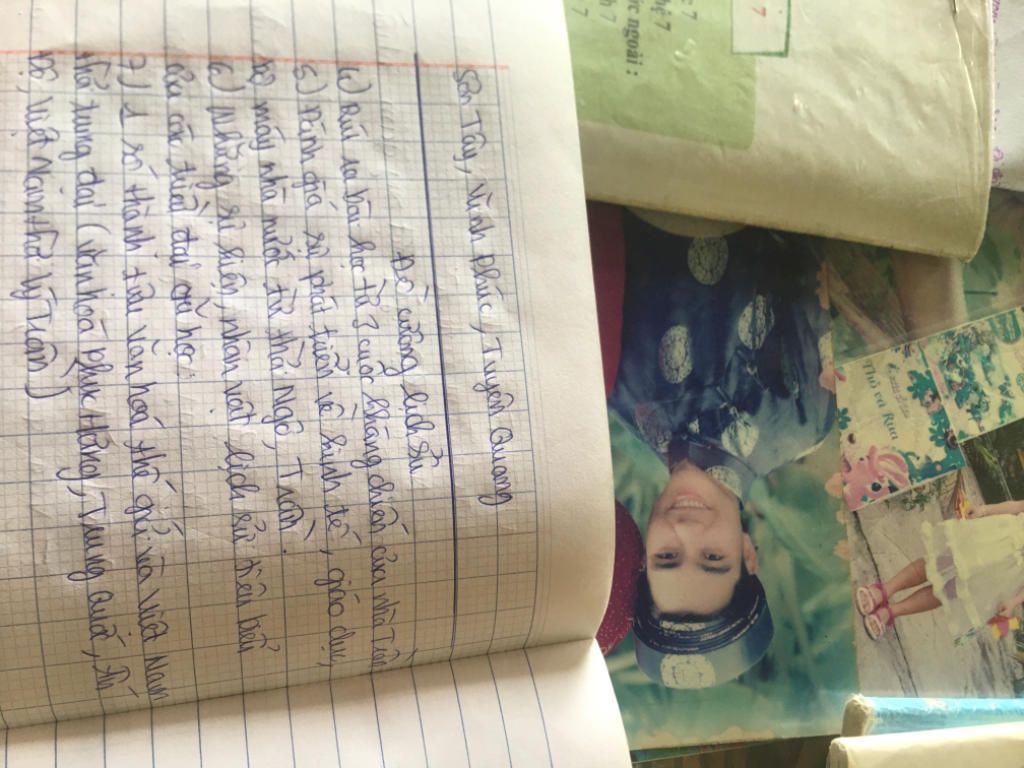 Sơn Tây, Vĩnh Phúc, Tuyên Quang
Đề cương lịch sử
4) Rút ra bài học từ 3 cuộc kháng chiến của nhà Trần
5) Đánh giá sự phát triển về kinh tế, giáo dục,
bộ máy nhà nước từ thời Ngô, Trần.
6) Những sự kiện, nhân vật lịch sử tiêu biểu
của các triều đại đã học
7) 1 số thành tựu văn hoá thế giới và Việt Nam
thời trung đại (văn hoá phục Hưng, Trung Quốc, Ấn
Độ, Việt Nam thời Lý Trần)
7
7
hệ 7
h 7
ớc ngoài :
7
Thỏ và Rùa